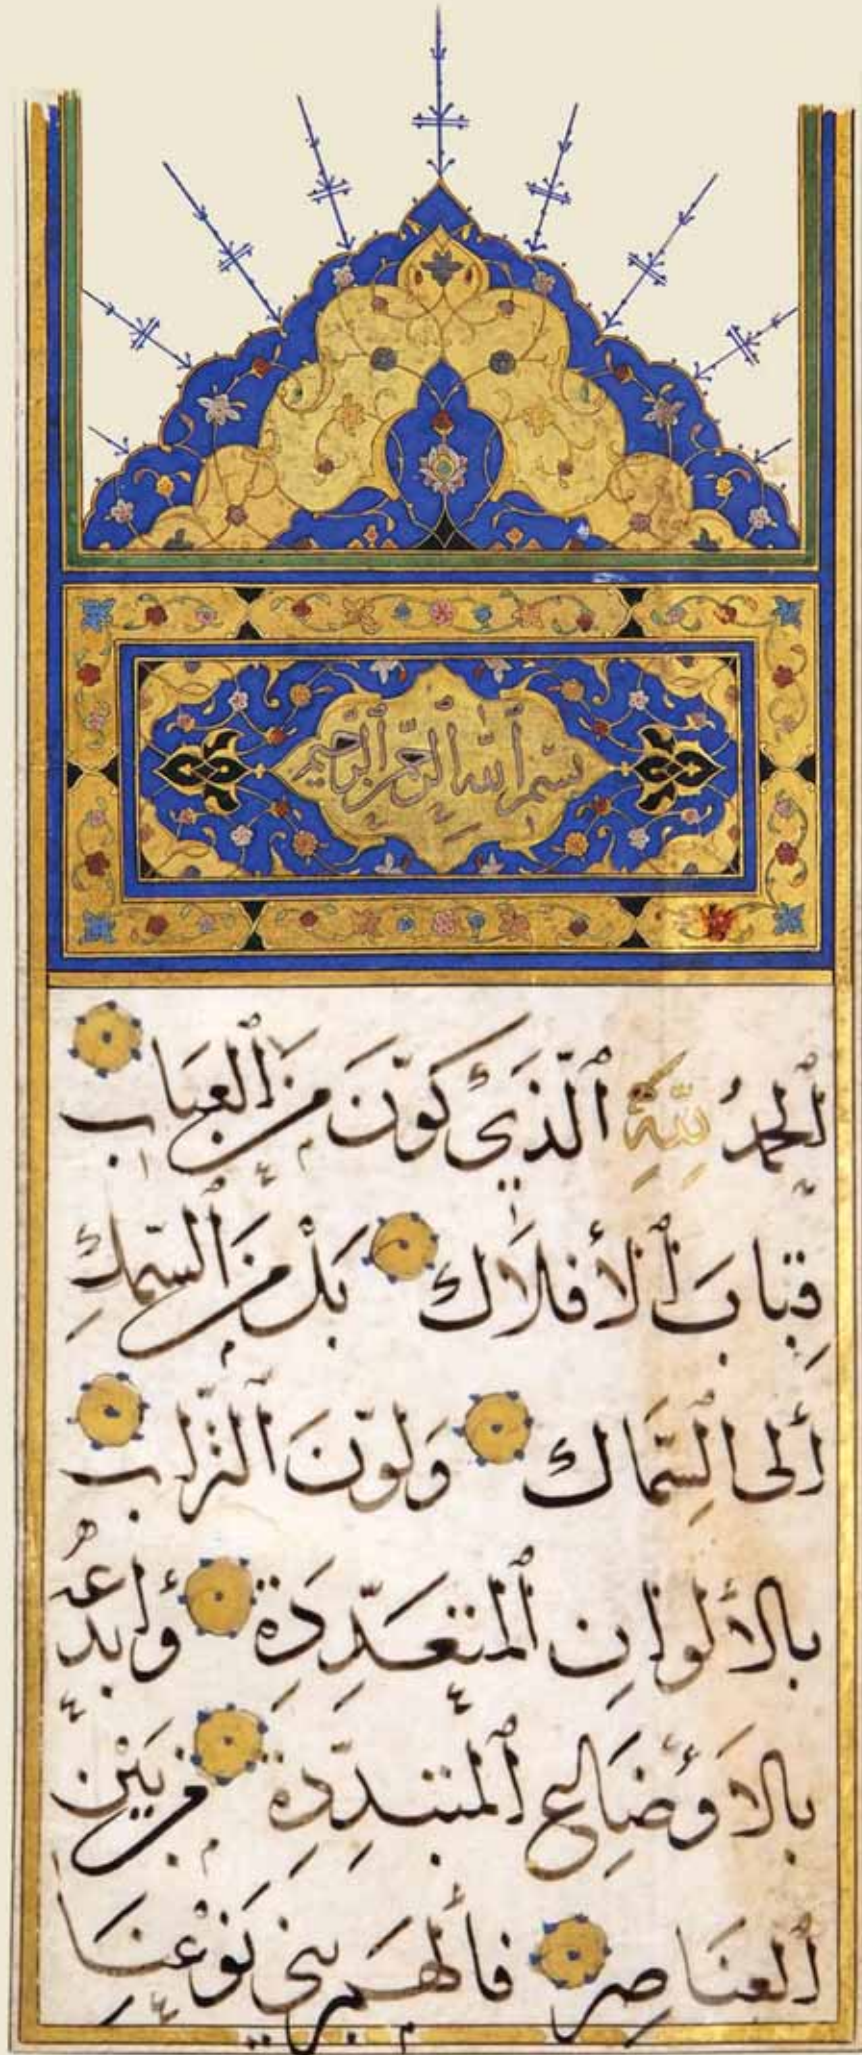 بسم الله الرحمن الرحيم
الحمدُ لِلّٰهِ الَّذِي كَوَّنَ مِنَ العُبَاب
قِبابَ الأفلاك بَلْ مِنَ السَّمكِ
إلى السِّمَاك وَلَوَّنَ التُّراب
بالألوانِ المتعَدِّدَة وأبدعُه
بالأوضَاعِ المتبدِّدَة مِن بَيْنِ
العنَاصِر فألهَم بني نَوْعِنَا